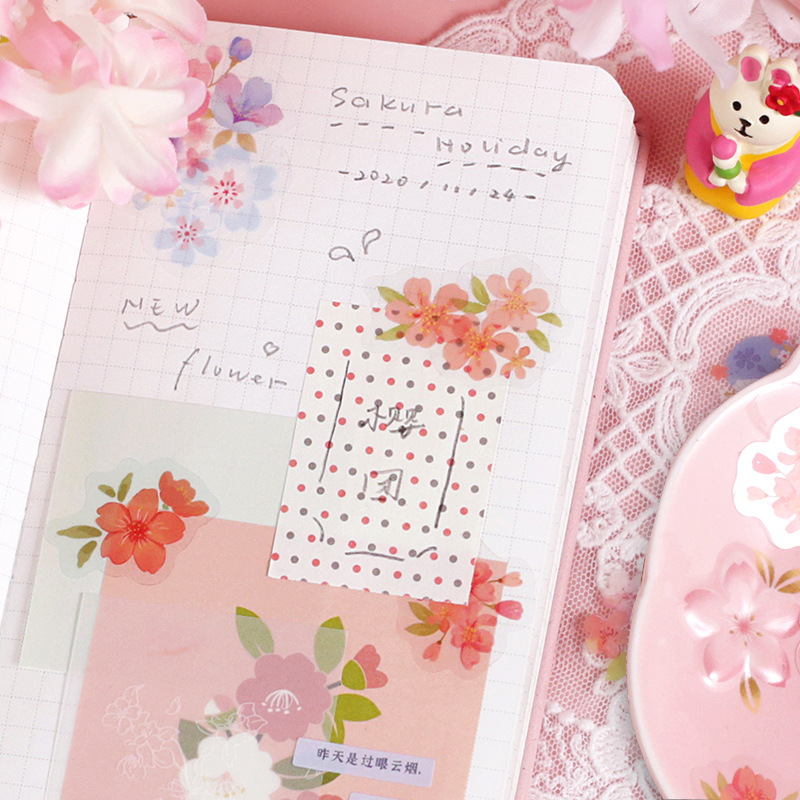 Sakura
Holiday
-2020,11,24-
NEW
flower
樱
团
昨天是过眼云烟.